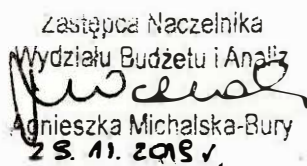 Zastępca Naczelnika
Wydziału Budżetu i Analiz
Agnieszka Michalska-Bury
11. 2018 r